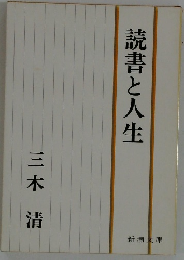 読書と人生
三木 清
新潮文庫